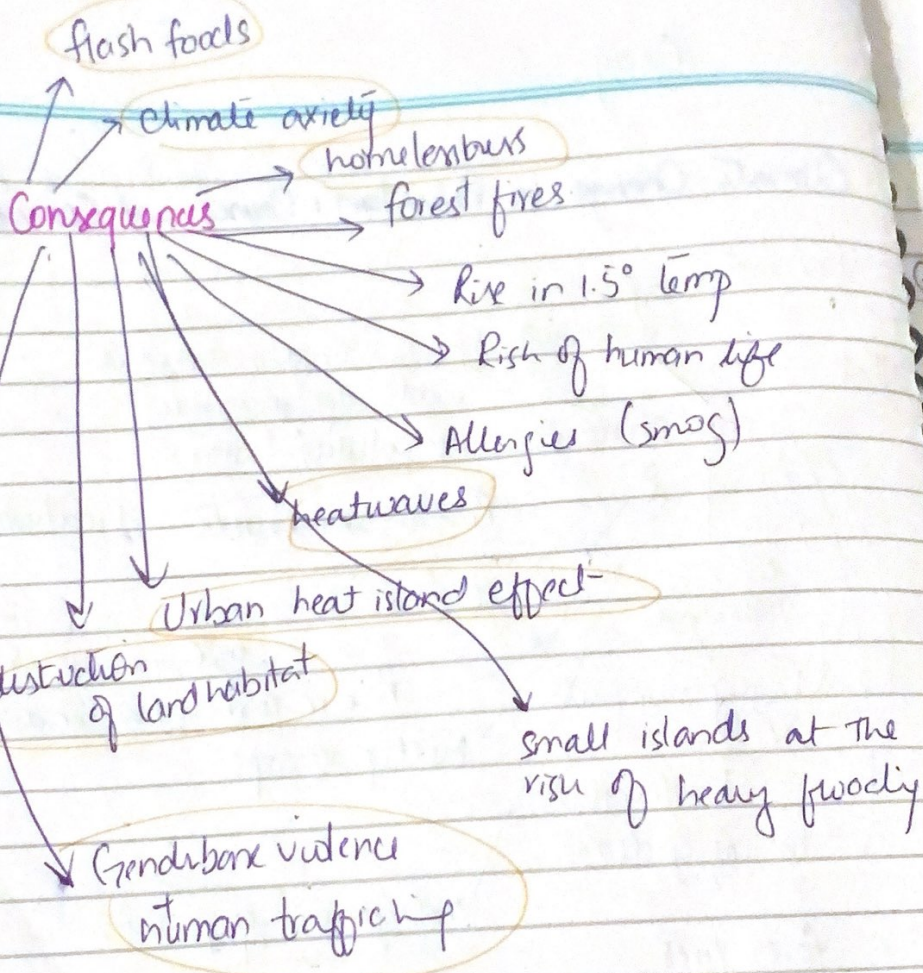 flash foods
climate axiety
homelessness
Consequences
forest fires
Rise in 1.5° temp
Risk of human life
Allergies (smog)
heatwaves
Urban heat island effect
destuction
of land habitat
small islands at the
risk of heavy floodig
Genderbase violence
+
human trafficking